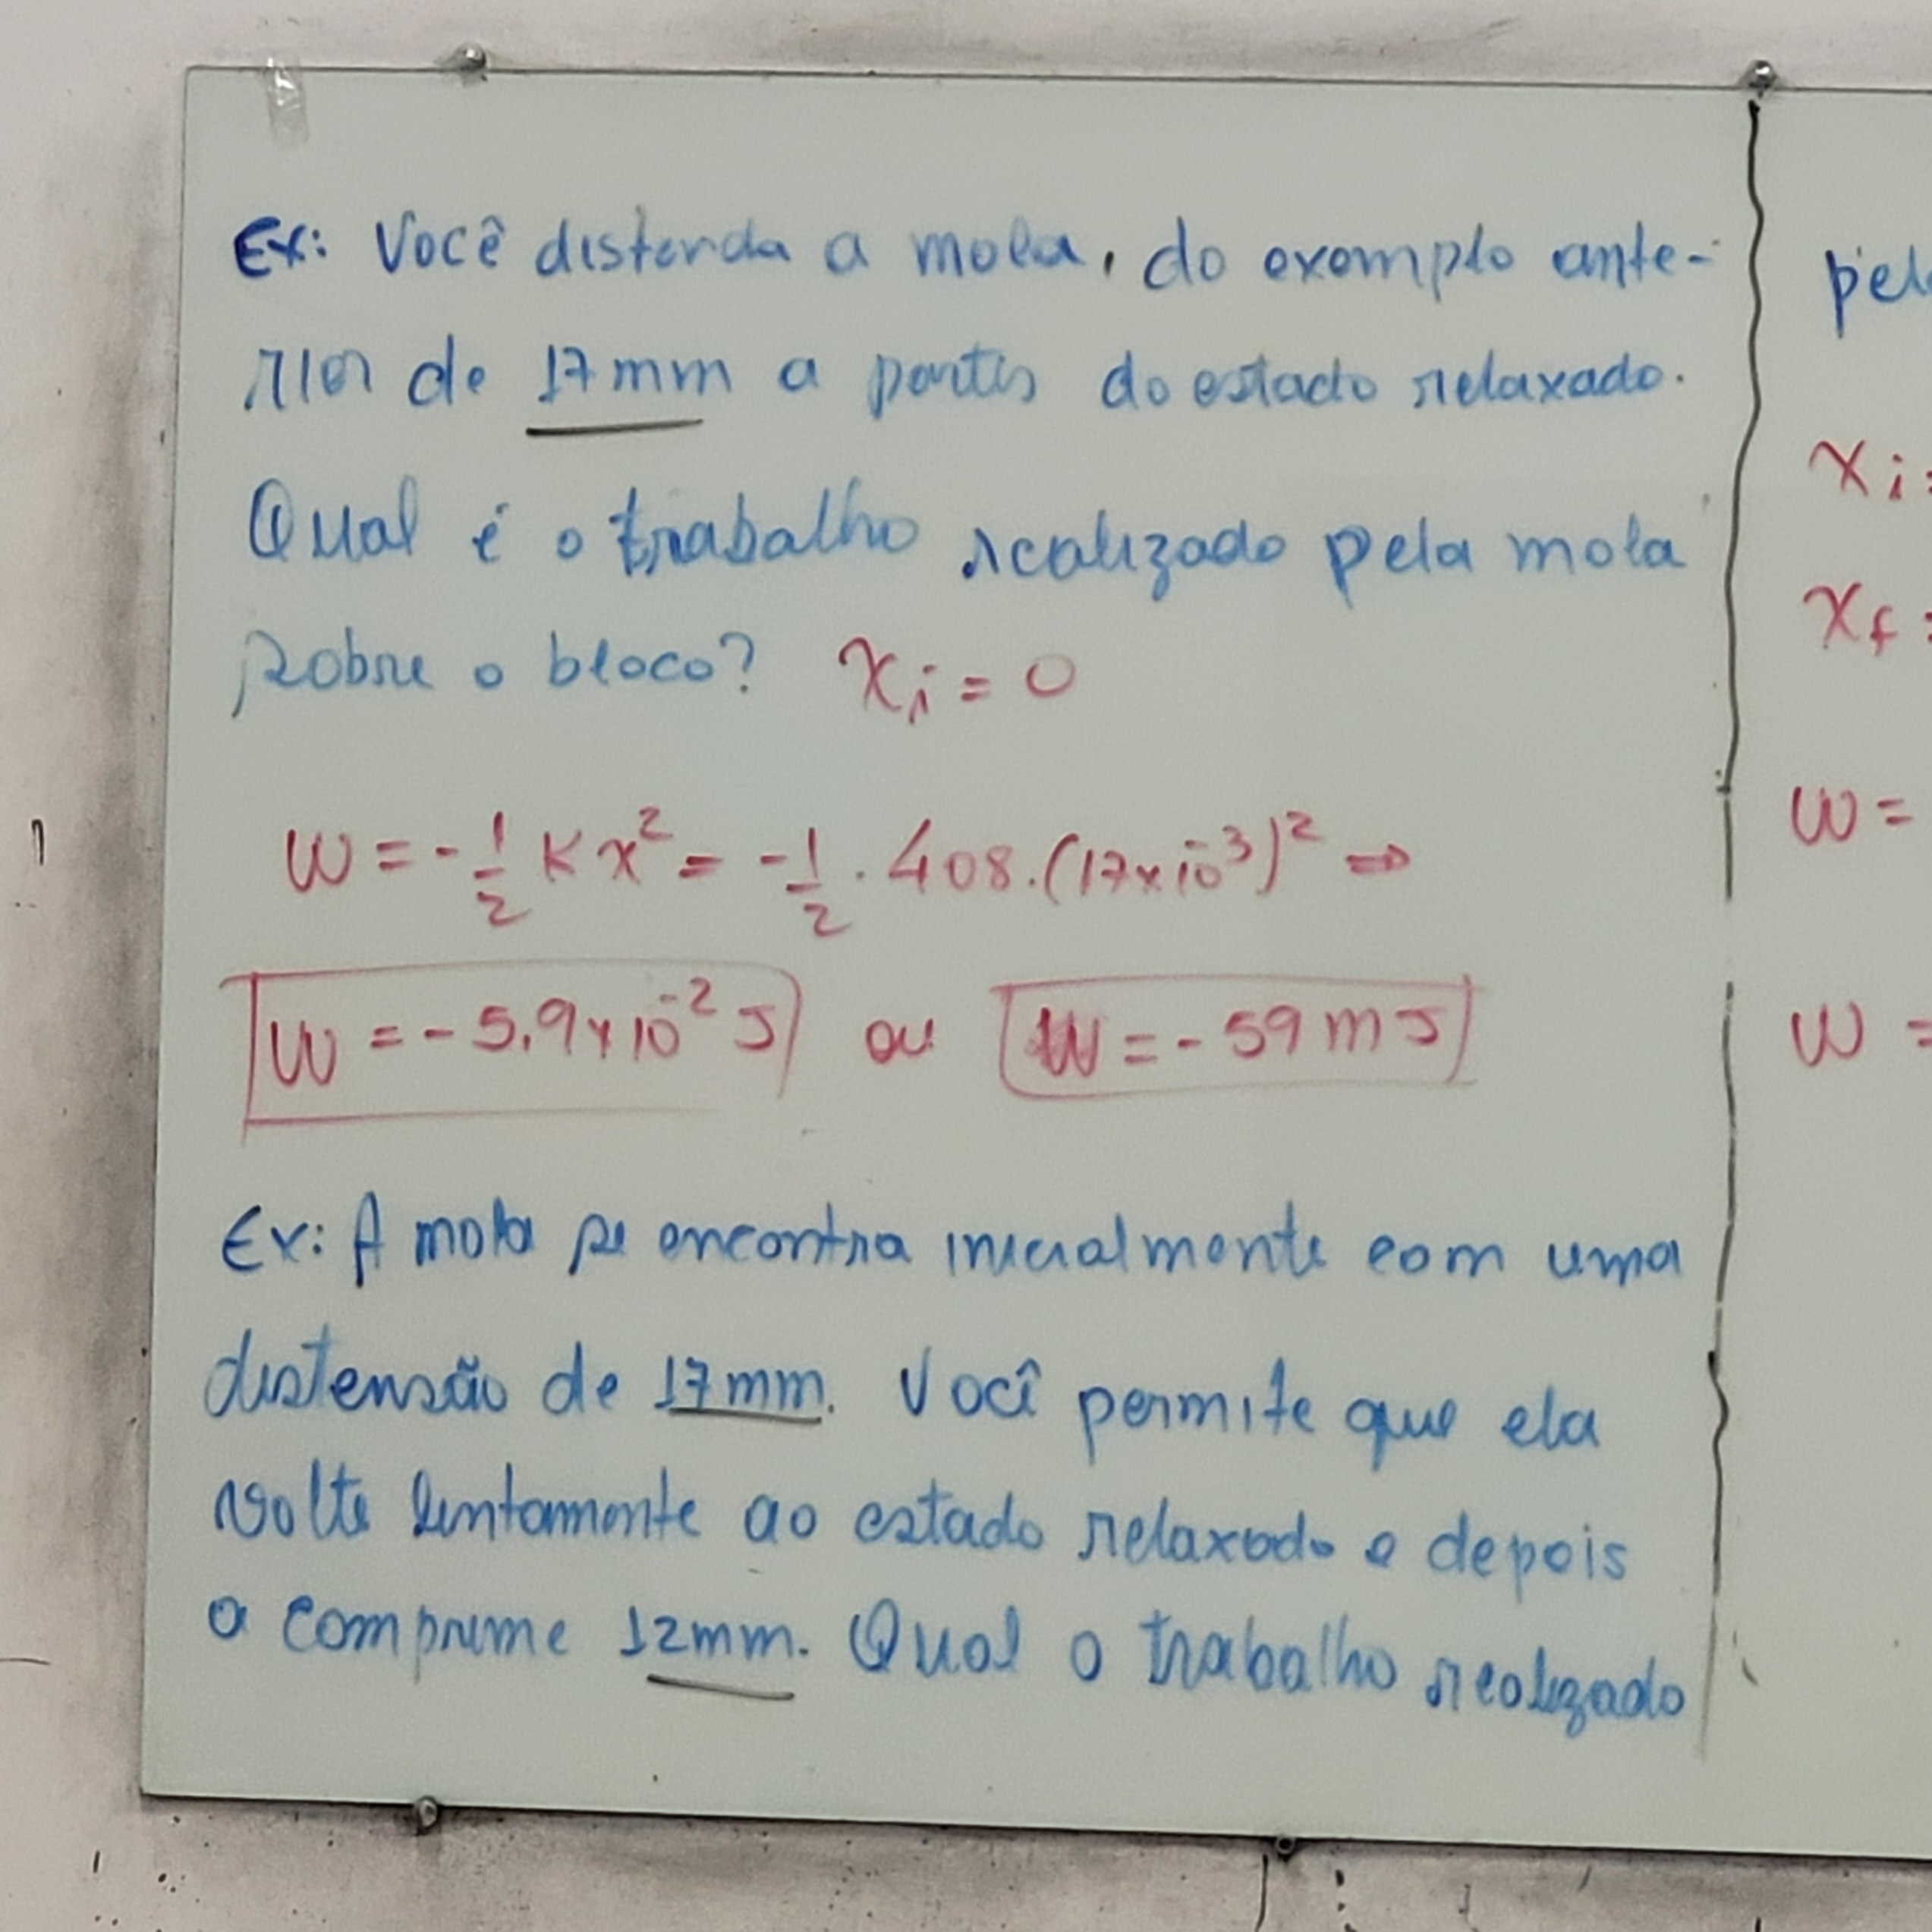 Ex: Você distenda a mola, do exemplo ante-
rior de 17mm a partir do estado relaxado.
Qual é o trabalho realizado pela mola
sobre o bloco? xi = 0
W = -1/2 K x² = -1/2 . 408.(17x10⁻³)² ⇒
W = -5,9x10⁻² J ou W = -59 mJ
Ex: A mola se encontra inicialmente com uma
distensão de 17mm. Você permite que ela
volte lentamente ao estado relaxado e depois
a comprime 12mm. Qual o trabalho realizado
xi
xf
W =
W =